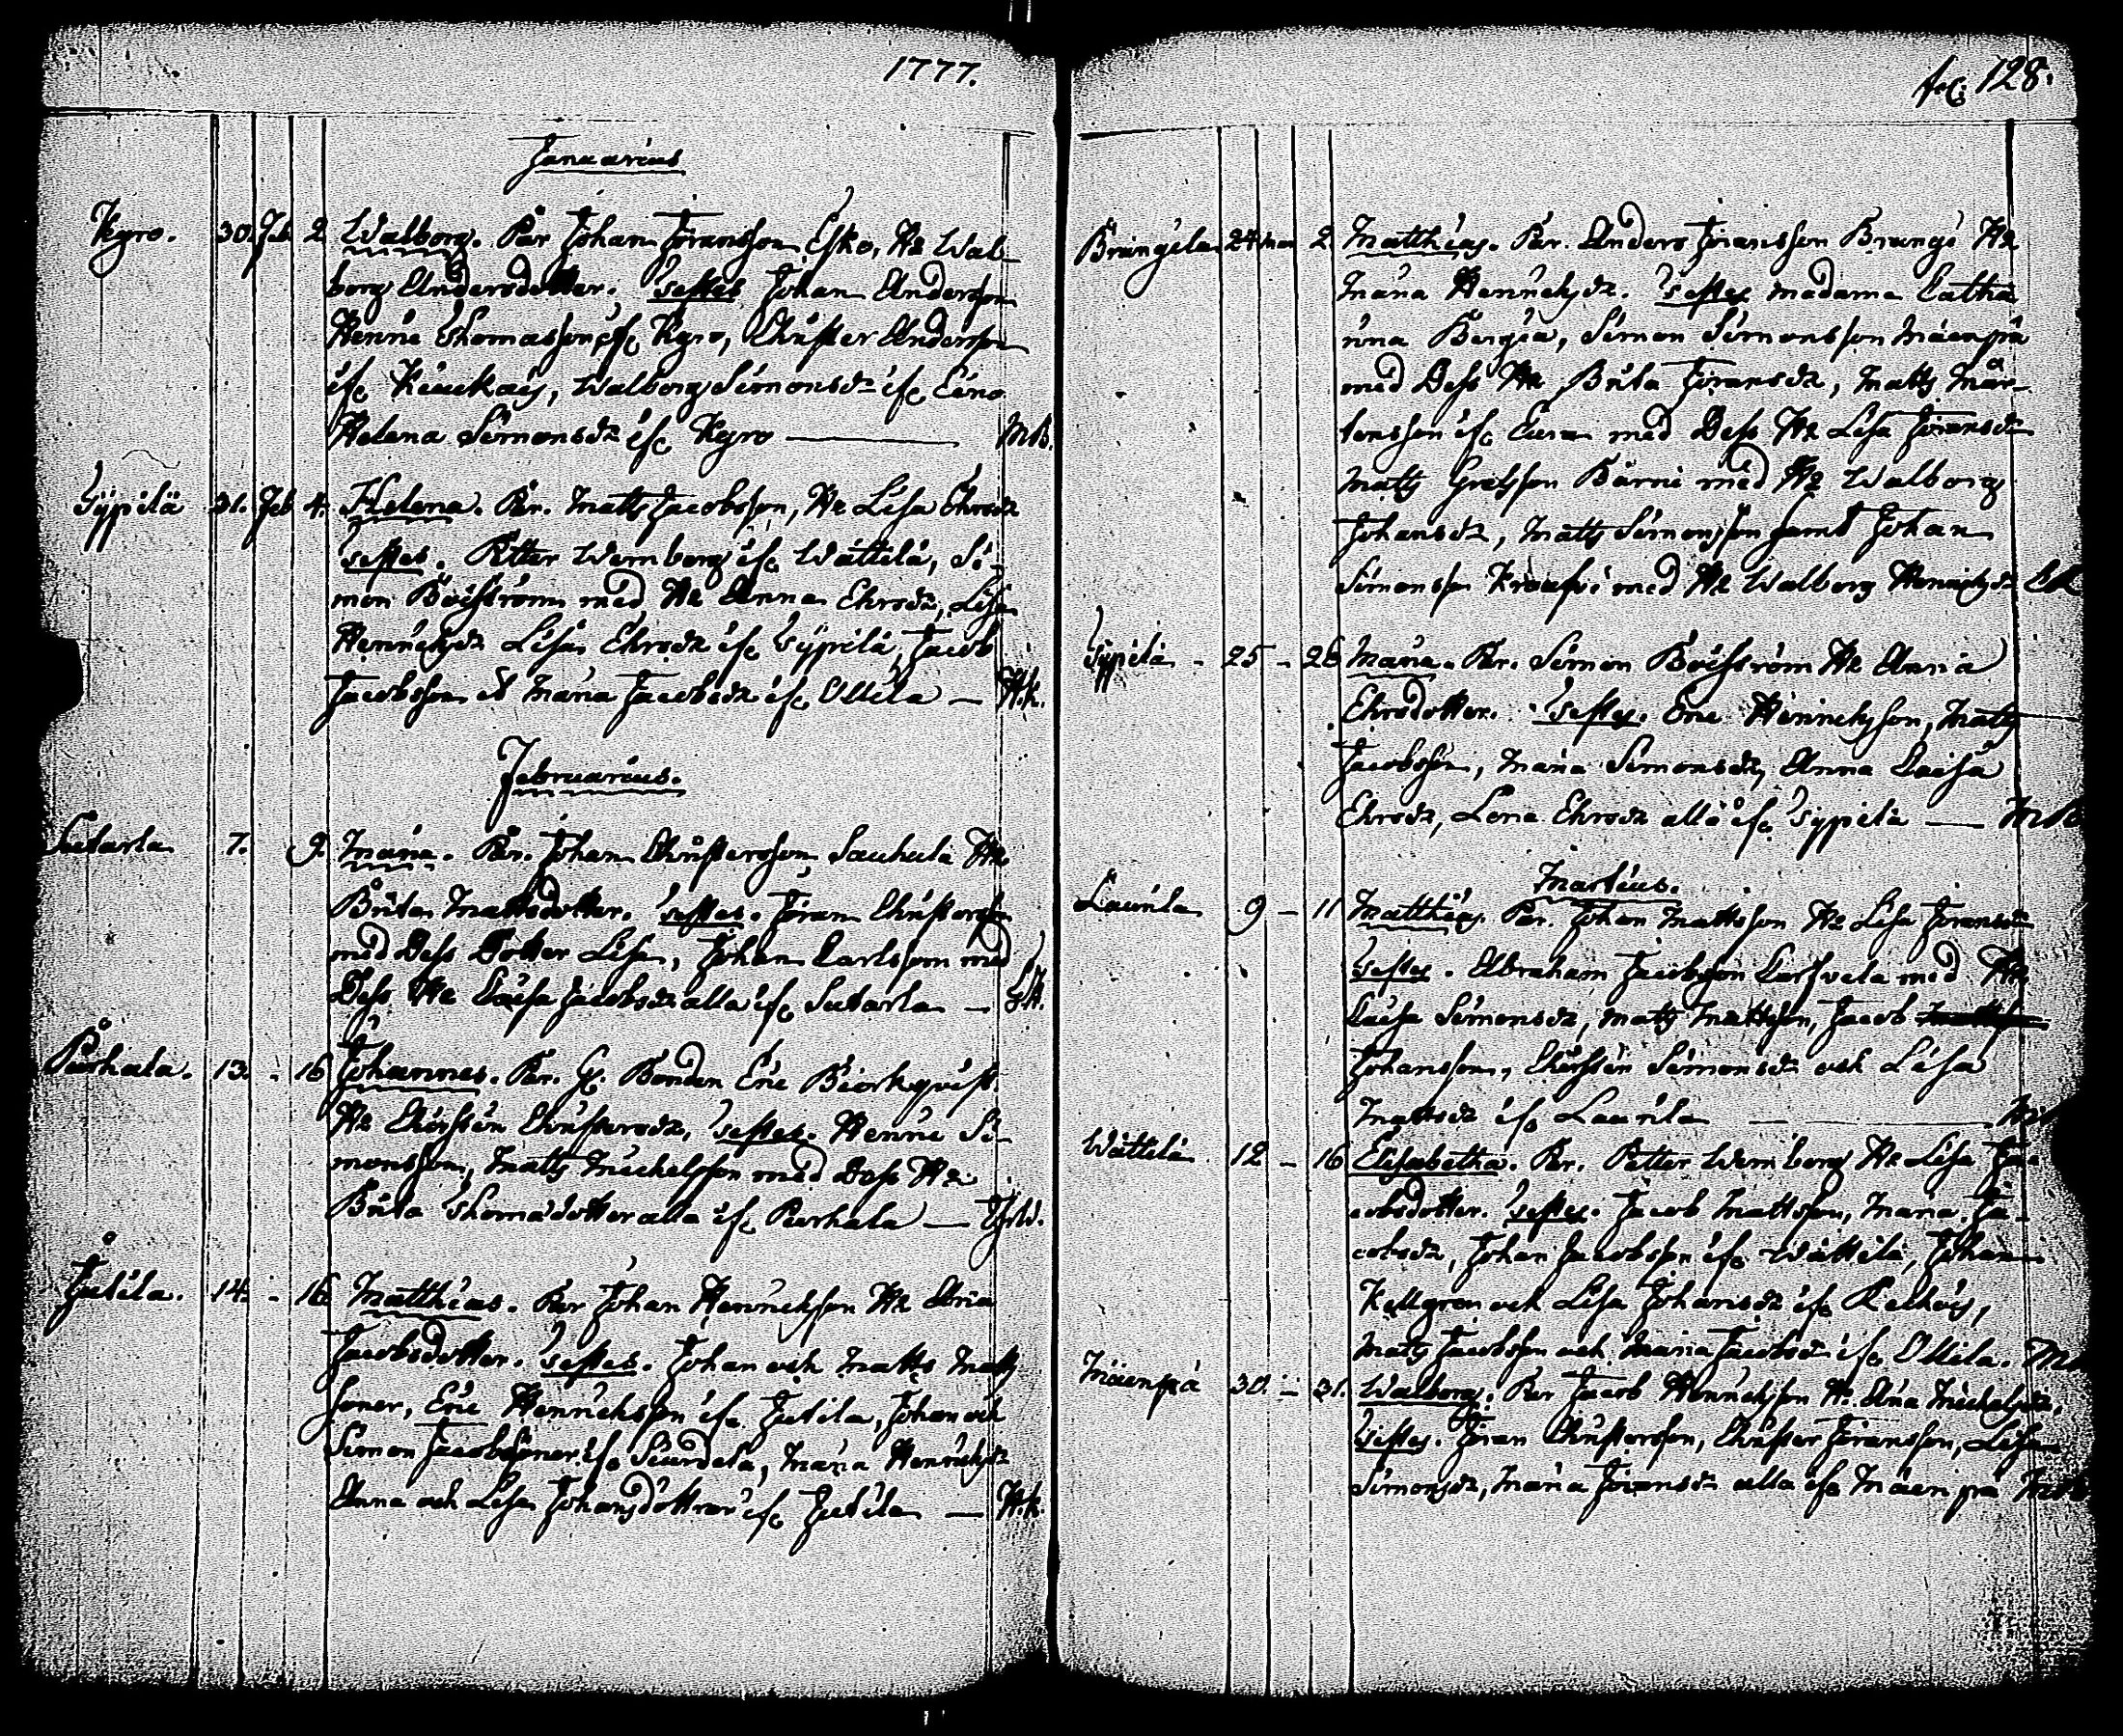 1777.
Januarius
Kyro. 30. Feb 2 Walborg. Pär Johan Jöransson Esko, Hr Wal-
borg Andersdotter. Testes Johan Andersson
Henric Thomasson ifr. Kyro, Christer Andersson
ifr. Kiuckais, Walborg Simonsdr ifr. Eino
Helena Simonsdr ifr. Kyro — MB.
Sÿpilä 31. Feb 4. Helena. Pär. Matts Jacobsson, Hr Lisa Ehrsdr
testes. Petter Wernberg ifr. Wättilä, Si-
mon Boisström med Hr Anna Ehrsdr, Lisa
Henrichsdr Lisa Ehrsdr ifr. Sÿpilä, Jacob
Jacobsson et Maria Jacobsdr ifr. Ollila — H.k.
Februarius.
Sutarla 7. 9. Maria. Pär. Johan Christersson Sauhula Hr
Brita Mattsdotter. testes. Jöran Christersson
med Dess Dotter Lisa, Johan Carlsson med
Dess Hr Caisa Jacobsdr alla ifr. Sutarla —
Purhala. 13. - 16 Johannes. Pär. Gl. Bonden Eric Biorkqvist.
Hr Chirstin Christersdr, testes. Henric Si-
monsson, Matts Michelsson med Dess Hr
Brita Thomadotter alla ifr. Purhala —
Jutila. 14. - 16. Matthias. Pär Johan Henrichsson Hr Ania
Jacobsdotter. testes. Johan och Matts Matts
söner, Eric Henrichsson ifr. Jutila, Johan och
Simon Jacobsöner ifr. Suurdela, Maria Henrichsdr
Anna och Lisa Johansdöttrar ifr. Jutila — H.k.
fol. 128.
Brungila 24 Mar 2. Matthias. Pär. Anders Jöransson Brungi Hr
Maria Henrichsdr. testes Madame Catha
rina Bergia, Simon Simonsson Mäenpä
med Dess Hr Brita Jöransdr, Matts Mår-
tensson ifr. Eura med Dess Hr Lisa Jöransdr
Matts Grelsson Bärni med Hr Walborg
Johansdr, Matts Simonsson samt Johan
Simonsson med Hr Walborg Henrichsdr
Sÿpilä - 25 - 26 Maria. Pär. Simon Boisström Hr Anna
Ehrsdotter. testes. Eric Henrichsson, Matts
Jacobsson, Maria Simonsdr, Anna Caisa
Ehrsdr, Lena Ehrsdr alla ifr. Sÿpilä —
Martius.
Laurila 9 - 11 Matthias. Pär. Johan Mattsson Hr Lisa Jöransdr
testes. Abraham Jacobsson med Hr
Caisa Simonsdr, Matts Mattsson, Jacob
Johansson, Chirstin Simonsdr och Lisa
Mattsdr ifr. Laurila —
Wättilä 12 - 16 Elisabetha. Pär. Petter Wernberg Hr Lisa Ja-
cobsdotter. testes. Jacob Mattsson, Maria Ja-
cobsdr, Johan Jacobsson ifr. Wättilä, Johan
Kellgren och Lisa Johansdr ifr.
Matts Jacobsson och Maria Jacobsdr ifr. Ollila.
Mäenpä 30. - 31. Walborg. Pär Jacob Henrichsson Hr. Ana Michelsdr.
testes. Jöran Christersson, Christer Jöransson, Lisa
Simonsdr, Maria Jöransdr alla ifr Mäenpä